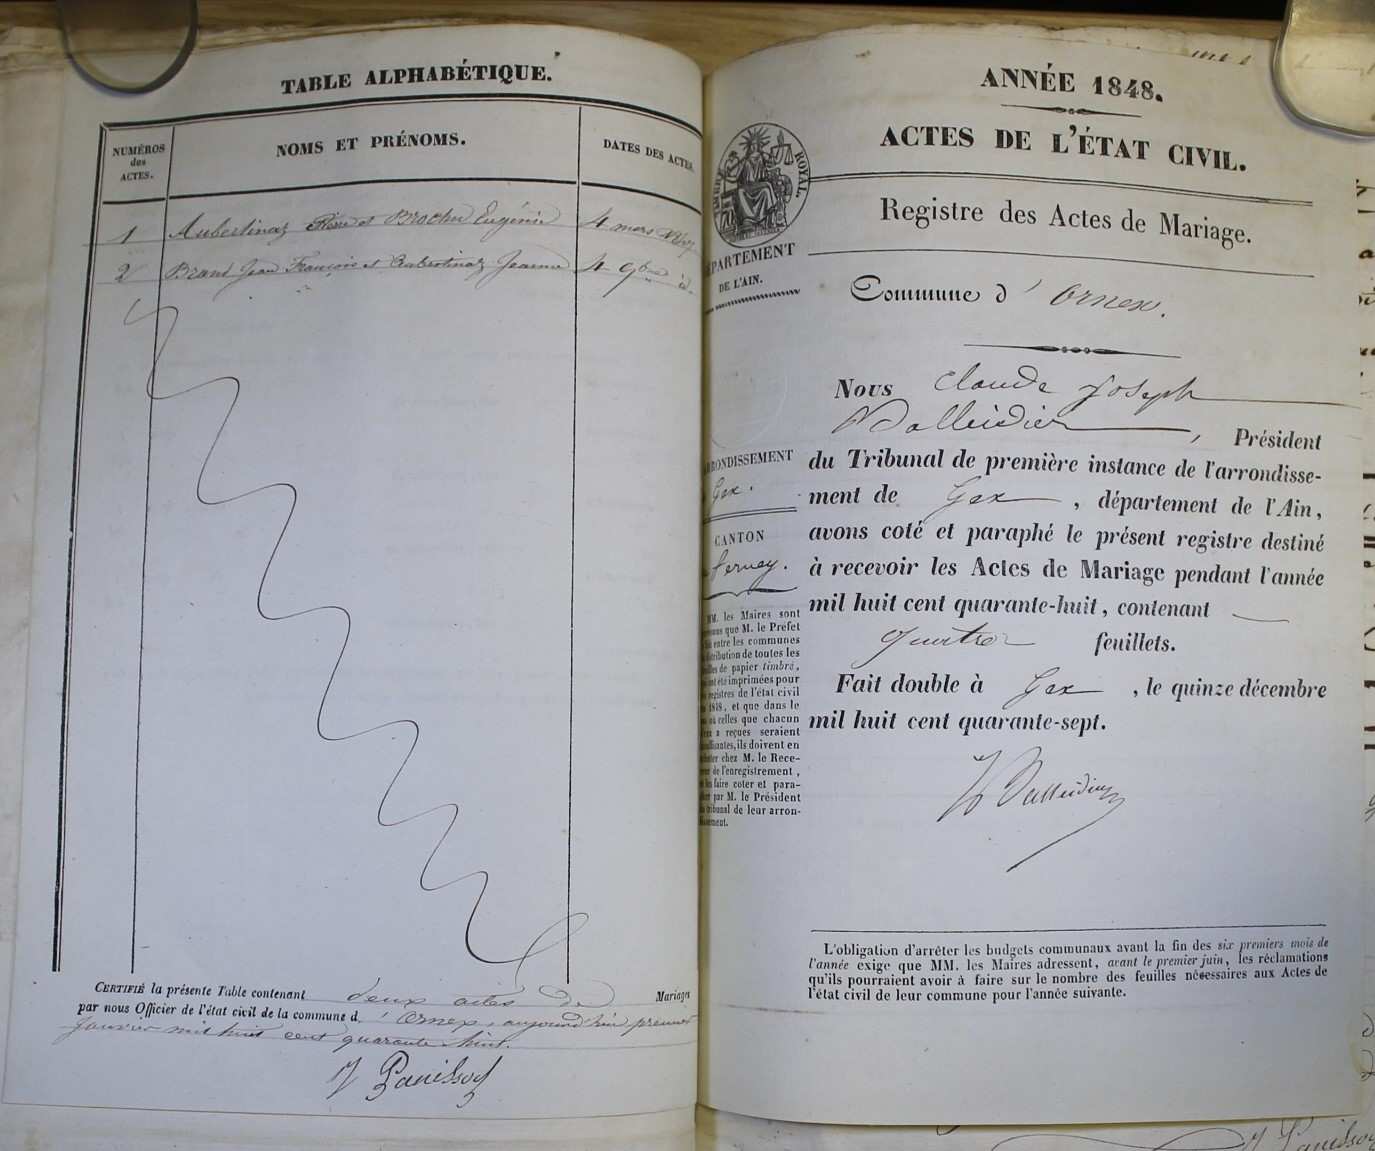 TABLE ALPHABÉTIQUE.
NUMÉROS
des
ACTES.
NOMS ET PRÉNOMS.
DATES DES ACTES.
1 Aubertinaz et Brochu Eugénie 4 mars
2 Jean François et Aubertinaz Jeanne 4 9bre id.
CERTIFIÉ la présente Table contenant deux actes de Mariages
par nous Officier de l'état civil de la commune d'Ornex, aujourd'hui premier
janvier mil huit cent quarante huit.
Panissod
ANNÉE 1848.
ACTES DE L'ÉTAT CIVIL.
Registre des Actes de Mariage.
Commune d'Ornex.
TIMBRE ROYAL.
DÉPARTEMENT
DE L'AIN.
ARRONDISSEMENT
Gex.
CANTON
Ferney.
MM. les Maires sont
que M. le Préfet
entre les communes
distribution de toutes les
feuilles de papier timbré,
ont été imprimées pour
registres de l'état civil
1848, et que dans le
où celles que chacun
a reçues seraient
insuffisantes, ils doivent en
acheter chez M. le Rece-
veur de l'enregistrement,
faire coter et para-
pher par M. le Président
du tribunal de leur arron-
dissement.
Nous Claude Joseph
Balleidier, Président
du Tribunal de première instance de l'arrondisse-
ment de Gex, département de l'Ain,
avons coté et paraphé le présent registre destiné
à recevoir les Actes de Mariage pendant l'année
mil huit cent quarante-huit, contenant
quatre feuillets.
Fait double à Gex, le quinze décembre
mil huit cent quarante-sept.
Balleidier
L'obligation d'arrêter les budgets communaux avant la fin des six premiers mois de
l'année exige que MM. les Maires adressent, avant le premier juin, les réclamations
qu'ils pourraient avoir à faire sur le nombre des feuilles nécessaires aux Actes de
l'état civil de leur commune pour l'année suivante.